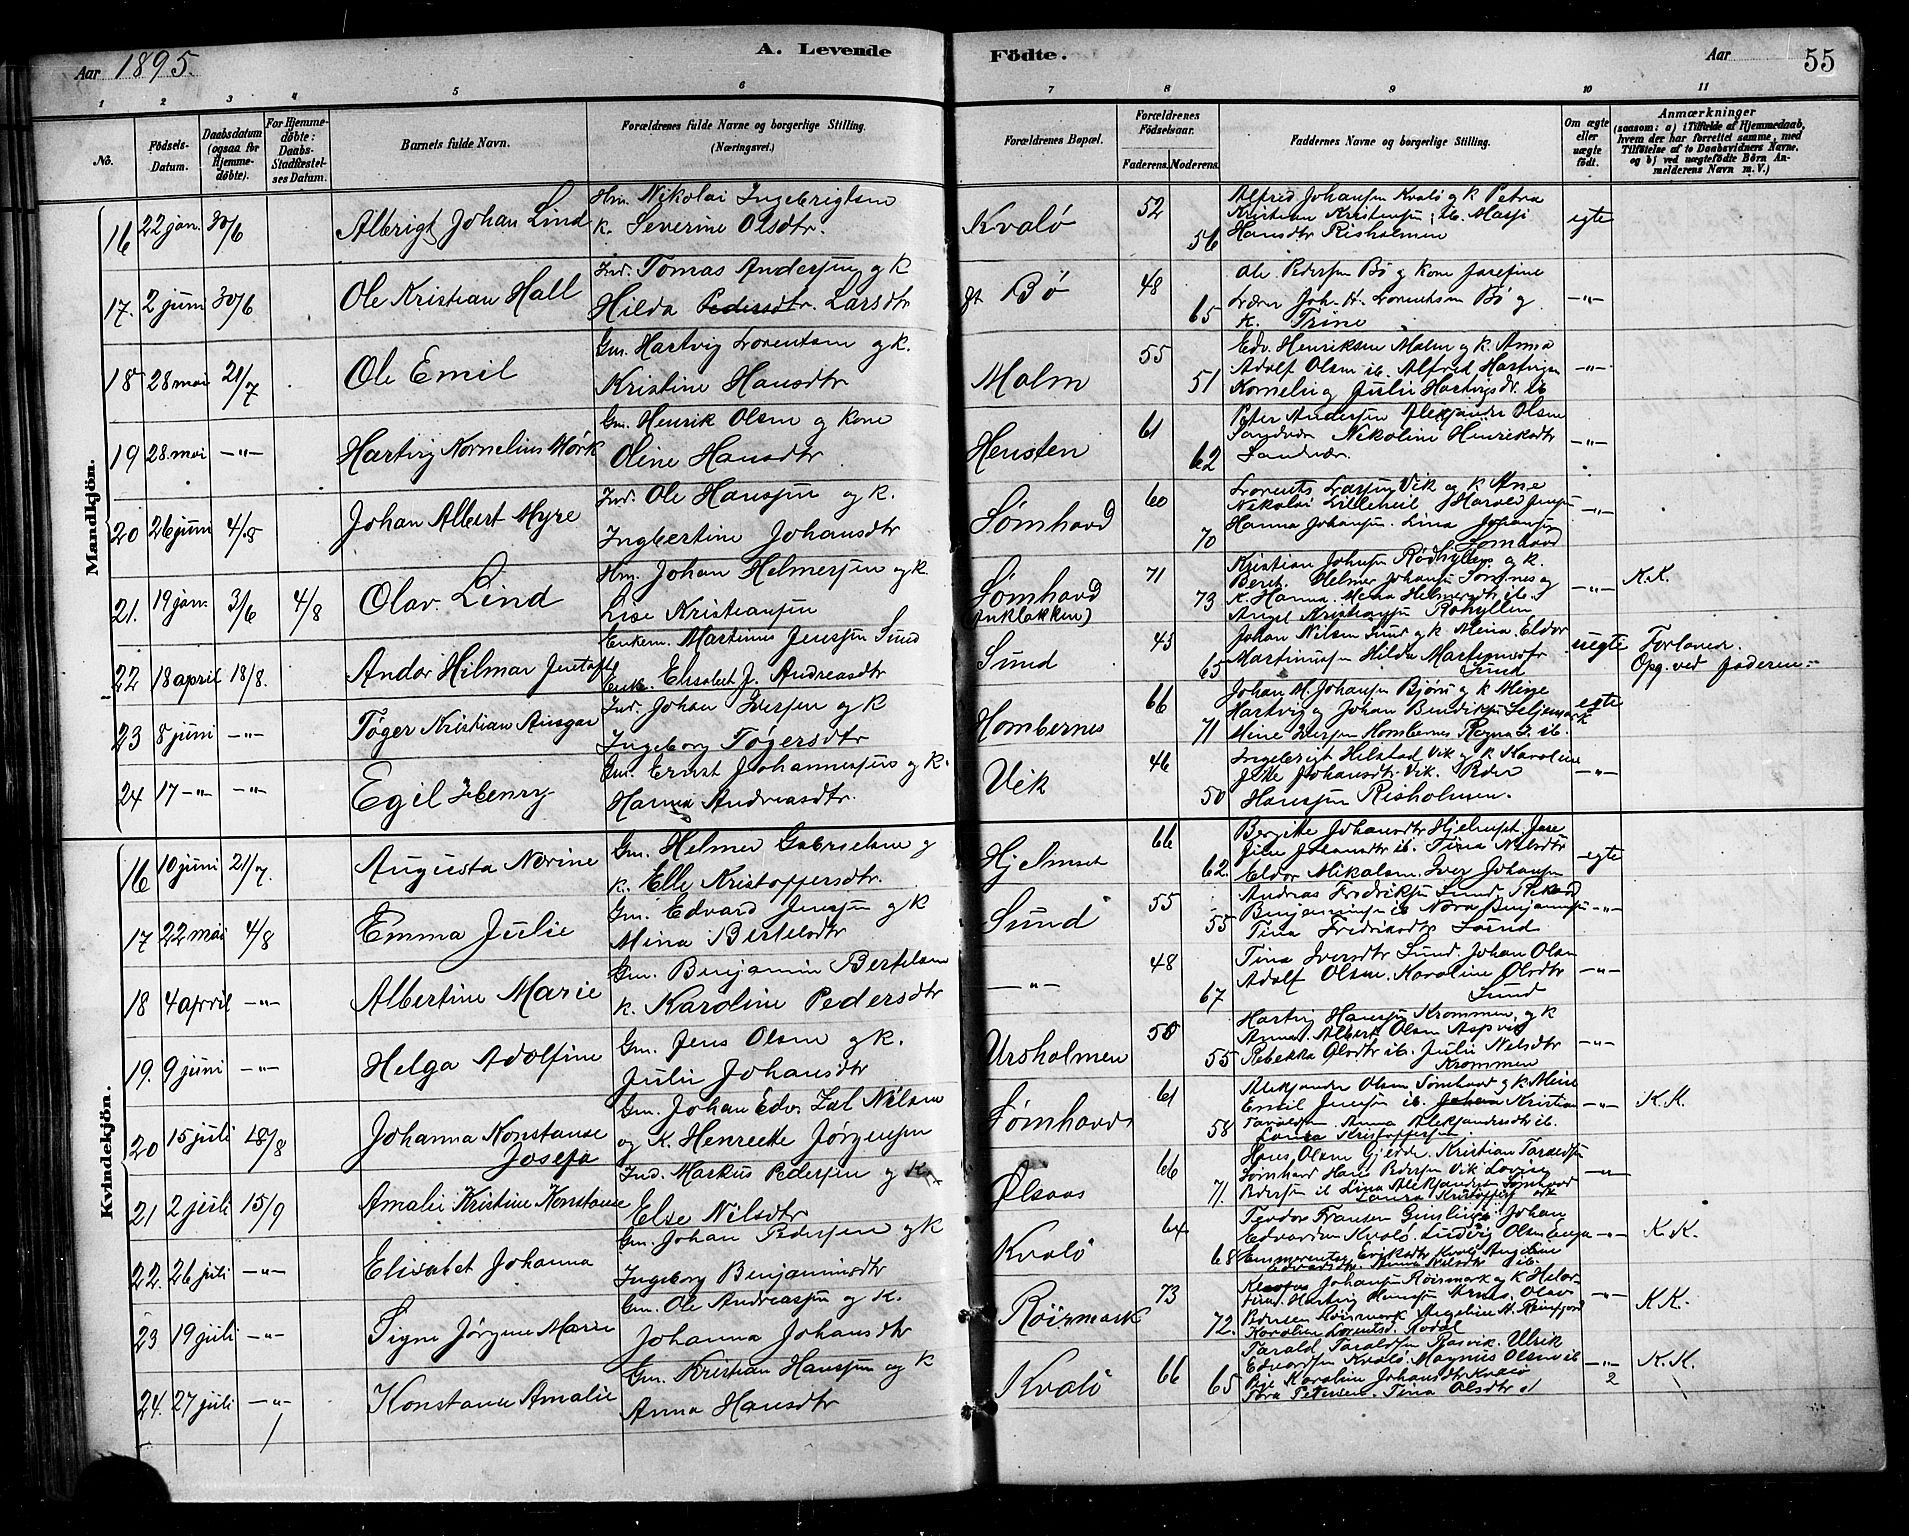 Aar 1895.
A. Levende
Födte.
Aar
55
1 2 3 4 5 6 7 8 9 10 11
No.
Födsels-Datum.
Daabsdatum (ogsaa for Hjemmedöbte).
For Hjemmedöbte: Daabs-Stadfæstelses Datum.
Barnets fulde Navn.
Forældrenes fulde Navne og borgerlige Stilling.
(Næringsvei.)
Forældrenes Bopæl.
Forældrenes Födselsaar.
Faderens. Moderens.
Faddernes Navne og borgerlige Stilling.
Om ægte eller uægte födt.
Anmærkninger
(saasom: a) i Tilfælde af Hjemmedaab, hvem der har forrettet samme, med Tilföielse af to Daabsvidners Navne, og b) ved uægtefödte Börn Anmelderens Navn m. V.)
Mandkjön.
16 22 jan. 30/6 Albrigt Johan Lind
Hm. Nikolai Ingebrigtsen
k. Severine Olsdtr.
Kvalö 52 56
Alfred Johansen Kvalö og k Petra
Kristian Kristensen ib. Masji
Hansdtr Risholmen
egte
17. 2 juni 30/6 Ole Kristian Hall
Ind. Tomas Andersen og k
Hilda Pedersdtr. Larsdtr
Bö 48 65
Ole Pedersen Bö og Kone Josefine
Lærer Joh. H. Lorentsen Bö og
k. Trine
-"-
18 28 mai 21/7 Ole Emil
Gm. Hartvig Lorentsen og k.
Kristine Hansdtr
Malm 55 51
Edv. Henriksen Malm og k. Anna
Adolf Olsen ib. Alfred Hartvigsen
Kornelius Julie Hartvigsdtr ib
-"-
19 28. mai -"- Hartvig Kornelius Mörk
Gm. Henrik Olsen og Kone
Oline Hansdtr
Hensten 61 62
Peter Andersen Aleksander Olsen
Sandvær Nikoline Henriksdtr
Sandvær.
-"-
20 26 juni 4/8 Johan Albert Myre
Ind. Ole Hansen og k.
Ingbertine Johansdtr
Sömhovd 60 70
Lorents Larsen Vik og k Ane
Nikolai Lilleheil Harald Jensen
Hanna Johansen Lina Johansen
Somhovd
-"-
21. 19 jan. 3/6 4/8 Olav Lind
Hm. Johan Helmersen og k.
Lise Kristiansen
Sömhovd
71 73
Kristian Johnsen Rödhyllen og k.
Beret. Helmer Johansen Somnes og
k. Hanna. Mena Helmersdtr ib.
Angel Kristiansen Rohyllen
-"- K.K.
22 18 april 18/8. Andor Hilmar Jentoft
Enkem. Martinus Jensen Sund
Enke. Elisabet J. Andreasdtr
Sund 45 65
Johan Nilsen Sund og k Mina Eldor
Martinussen Hilda Martinusdtr
Sund
uegte Forlover.
Opg. ved faderen
23 8 juni -"- Töger Kristian Ansgar
Ind. Johan Iversen og k
Ingeborg Tögersdtr
Hombernes 66 71
Johan M. Johansen Björu og k Mine
Hartvig og Johan Bendiksen
Mine Iversen Hombernes Regna I. ib.
egte
24 17 -"- -"- Egil Henry
Gm. Ernst Johannesen og k.
Hanna Andreasdtr.
Vik 46 50
Ingebrigt Hilstad Vik og k Karoline
Jette Johansdtr Vik. Peder
Hansen Risholmen.
-"-
Kvindekjön.
16 10 juni 21/7. Augusta Norine
Gm. Helmer Gabrielsen og
k. Elle Kristoffersdtr.
Hjelmset 66 62.
Bergitte Johansdtr Hjelmset. Jase
Jille Johansdtr ib. Tina Nilsdtr
Eldor Mikalsen. Iver Johansen
egte
17 22 mai 4/8 Emma Julie
Gm. Edvard Jensen og k
Mina Bertelsdtr
Sund 55 55
Andreas Fredriksen Sund
Benjaminsen ib Nora Benjaminsen
Tina Fredriksdtr Sund
-"-
18 4 april -"- Albertine Marie
Gm. Benjamin Bertelsen
k. Karoline Pedersdtr
-"- 48 67
Tina Iversdtr Sund. Johan Olsen
Adolf Olsen. Karoline Olsdtr
Sund
-"-
19. 9 juni -"- Helga Adolfine
Gm. Jens Olsen og k.
Julie Johansdtr
Ursholmen 50 55
Hartvig Hansen Krommen og k
Anna. Albert Olsen Aspvik
Rebekka Olsdtr ib. Julie Nilsdtr
Krommen
-"-
20 15 juli 18/8 Johanna Konstanse
Josefa
Gm. Johan Edv. Zal Nilsen
og k. Henrette Jörgensen
Sömhovd 61 58
Aleksander Olsen Sömhovd og k Mine
Emil Jensen ib. Johan Kristian
Taraldsen Anna Aleksandersdtr ib.
Laura Kristoffersen.
-"- K.K.
21 2 juli 15/9 Amalie Kristine Konstanse
Ind. Markus Pedersen og k
Else Nilsdtr
Ølsaas 66 71
Hans Olsen Gjedde. Kristian Taraldsen
Sömhovd Hans Pedersen Vik Lovise
Pedersen ib Lina Aleksandersen Somhovd
Laura Kristoffers dtr
-"-
22. 26 juli -"- Elisabet Johanna
Gm. Johan Pedersen og k
Ingeborg Benjaminsdtr
Kvalö 64 68
Teodor Fransen Johan
Edvardsen Kvalö. Ludvig Olsen
Emmerentse Eriksdtr Kvalö Angeline
Edvardsdtr Nilsdtr ib.
-"- K.K.
23 19 juli -"- Signe Jörgine Marie
Gm. Ole Andreassen og k.
Johanna Johansdtr
Röirmark 73 72.
Johansen Röirmark og k
Hartvig Hansen Olav
Pedersen Röirmark Angeline H.
Karoline Lorentsd.
-"- K.K.
24. 27 juli -"- Konstanse Amalie
Gm. Kristian Hansen og k
Anna Hansdtr
Kvalö 66 65
Tarald Taraldsen Rasvik Ulrik
Edvardsen Kvalö. Magnus Olsen ib
Karoline Johansdtr Kvalö
Tora Petersen. Tina Olsdtr
-"- K.K.
1
2